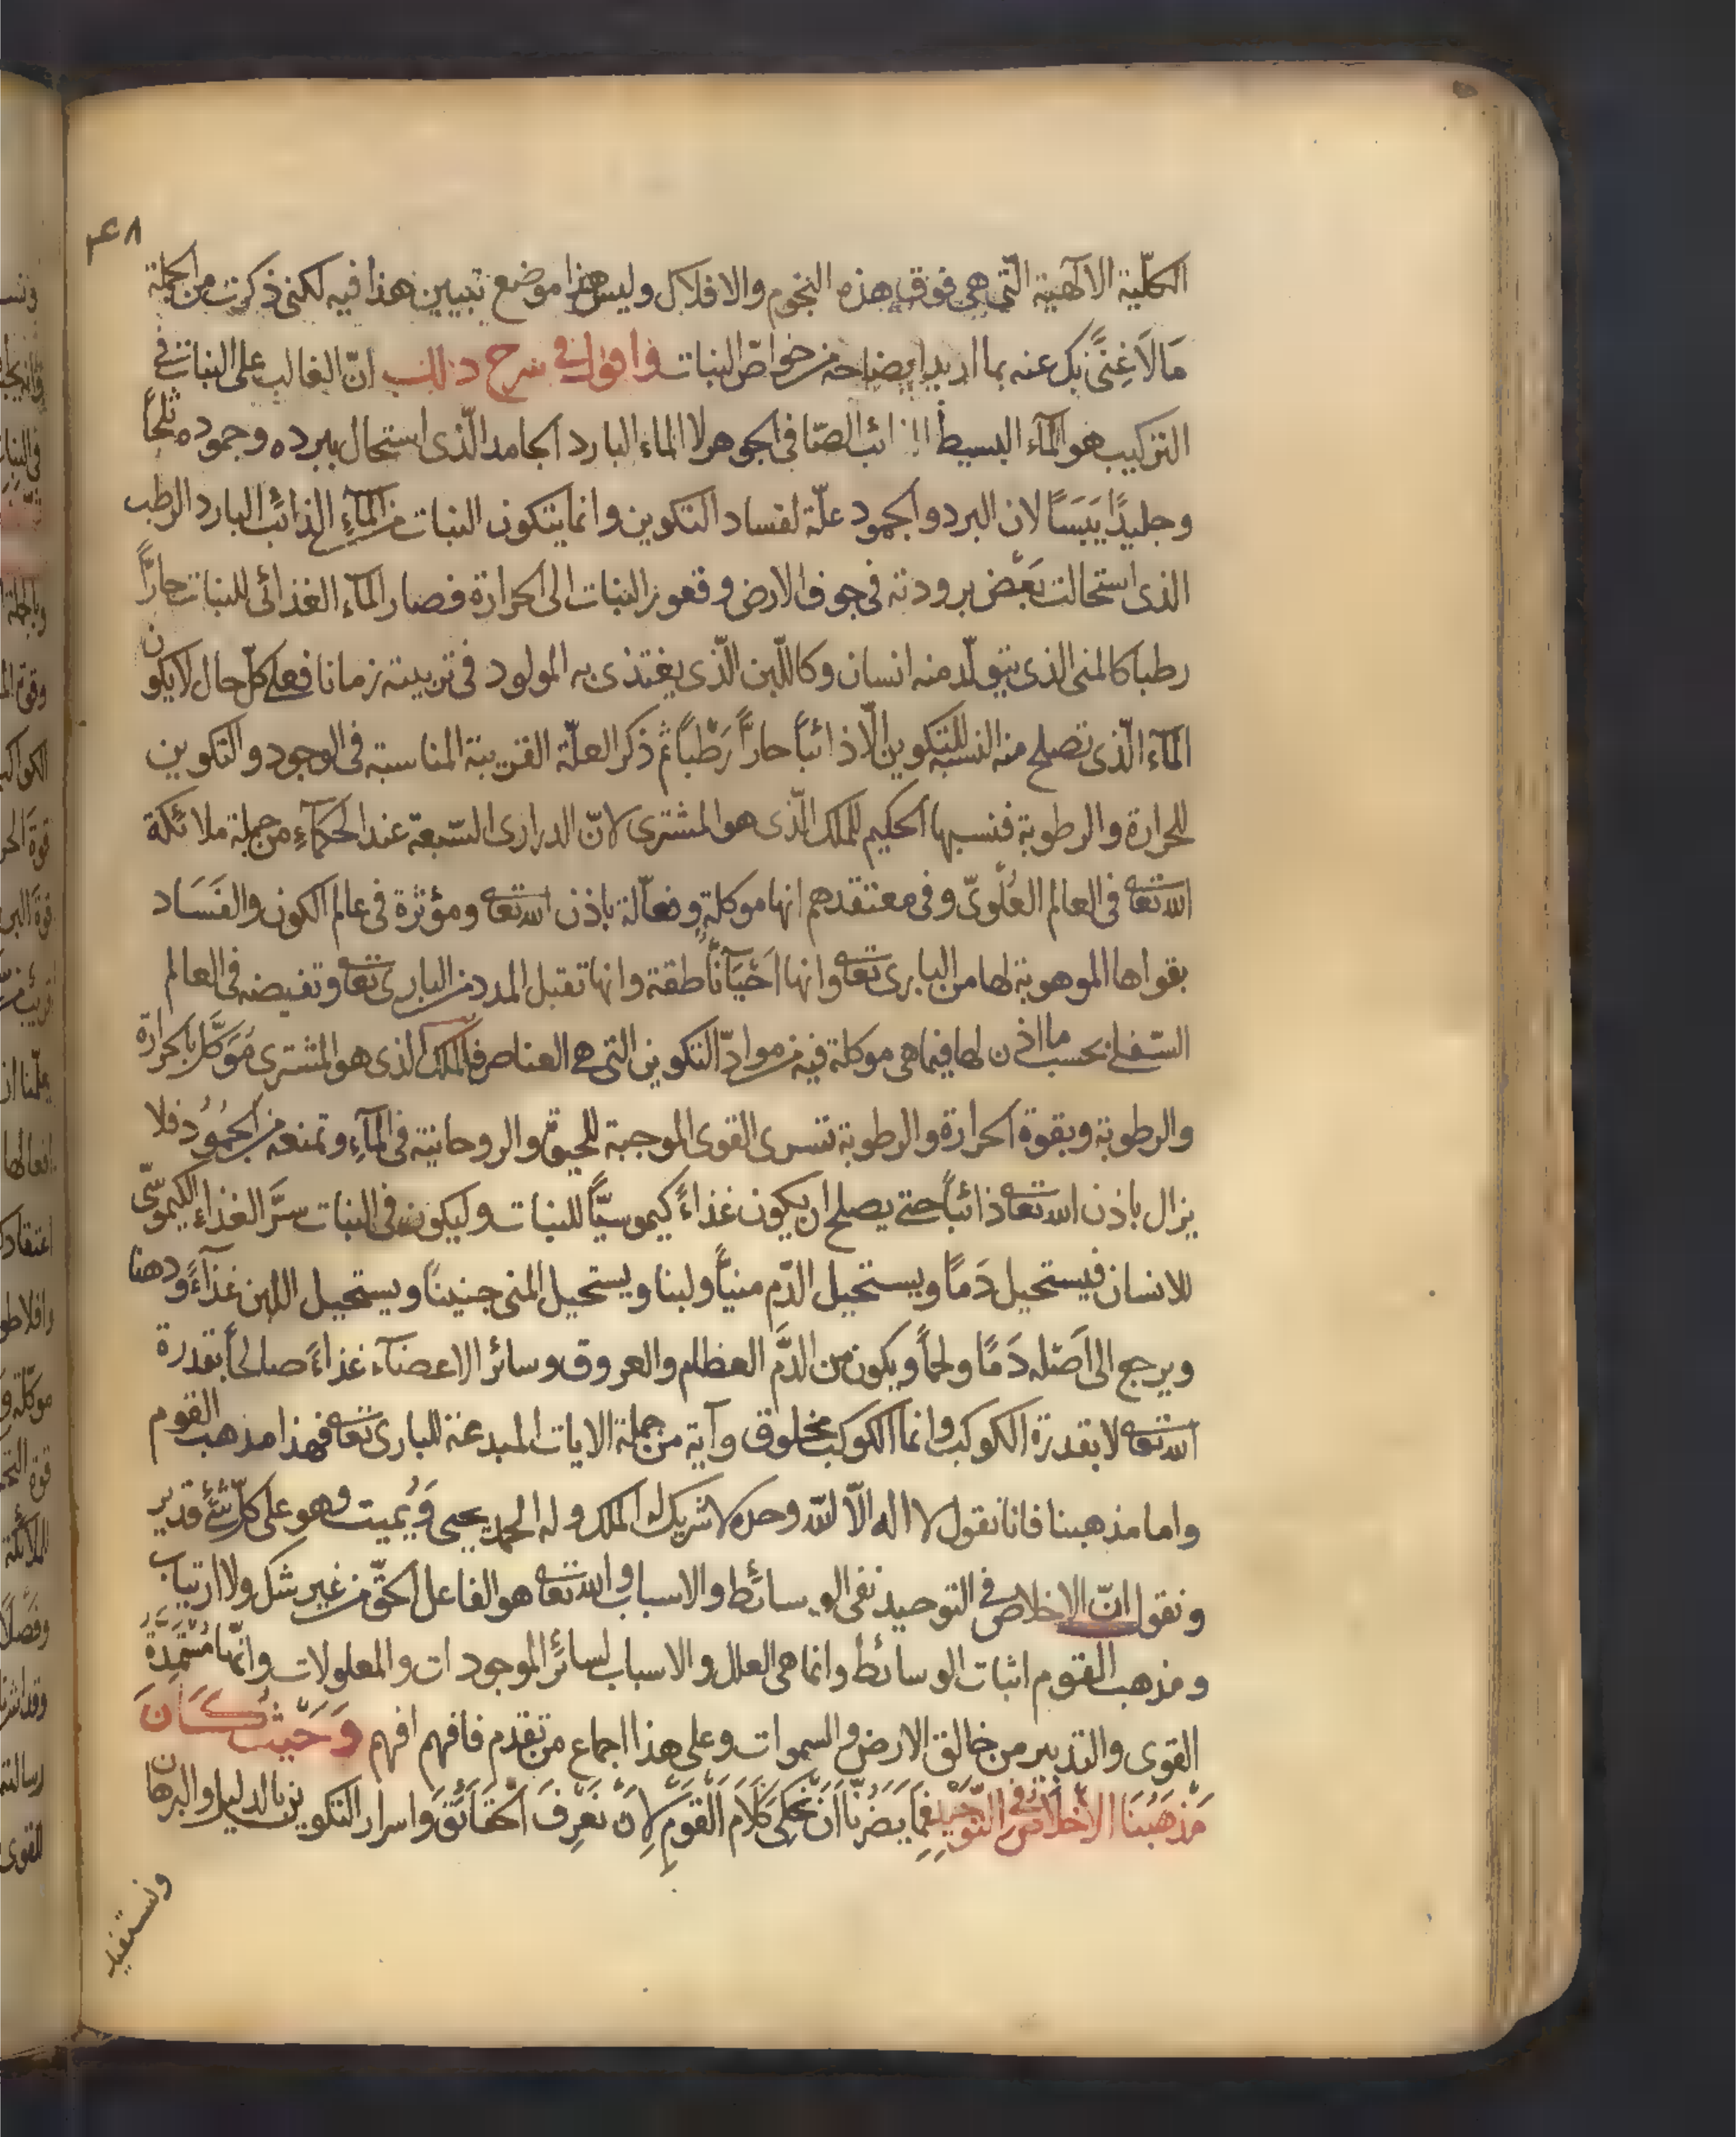 ٤٨
الكلّية الالٓهية الّتى هى فوق هذه النجوم والافلاك وليس هذا موضع تبيين هذا فيه لكنى ذكرت من الجملة
مَا لَا غِنًى بك عنه بما اريد ايضاحه من خواصّ النبات واقول فى شرح ذلك انّ الغالب على النبات فى
التركيب هو المآء البسيط الذائب الصّافى الجوهر لا الماء البارد الجامد الّذى استحال ببرده وجموده ثلجاً
وجليدًا يَبَسًا لان البرد والجمود علّة لفساد التكوين وانما يتكون النبات من المآءِ الذائب البارد الرطب
الذى استحالت بَعْض برودته فى جوف الارض وقعور النبات الى الحرارة فصار المآء الغذائى للنبات حارًّا
رطبا كالمنى الذى يتولّد منه انسان وكاللّبن الّذى يغتذى به المولود فى تربيته زمانا فعلى كلّ حال لا يكون
المآء الّذى تصلح منه النسبه للتكوين الّا ذائباً حارًّا رَطْباً ثم ذكر العلّة القريبة المناسبة فى الوجود والتكوين
للحرارة والرطوبة فنسبها الحكيم للملك الّذى هو المشترى لانّ الدرارى السّبعة عند الحكمآءِ من جملة ملائكة
الله تعالى فى العالم العُلْوىّ وفى معتقدهم انها موكلة وفعّالة باذن الله تعالى ومؤثرة فى عالم الكون والفَسَاد
بقواها الموهوبة لها من البارى تعالى وانها احْيَآنًا ناطقة وانها تقبل المدد من البارى تعالى وتفيضه فى العالم
السّفلى بحسب ما اذن لها فيما هى موكلة فيه من موادّ التكوين التى هى العناصر فالملك الذى هو المشترى مُوَكَّل بالحرارة
والرطوبة وبقوة الحرارة والرطوبة تسرى القوى الموجبة للحيوة والروحانية فى المآءِ وتمنعه من الجُمُودُ فلا
يزال باذن الله تعالى ذائباً حتى يصلح ان يكون غذاءً كيموسيًّا للنبات وليكون فى النبات سرَّ الغذاء الكيموسّى
للانسان فيستحيل دَمًا ويستحيل الدّم منيًّا ولبنا ويستحيل المنى جنينًا ويستحيل اللبن غذآءً ودهنا
ويرجع الى اَصْله دَمًا ولحماً ويكون من الدَّم العظام والعروق وسائر الاعضآء غذاءً صالحاً بقدرة
الله تعالى لا بقدرة الكوكب وانما الكوكب مخلوق وآية من جملة الايات المبدعة للبارى تعالى فهذا مذهب القوم
واما مذهبنا فانا نقول لا اله الّا الله وحده لا شريك له الملك وله الحمد يحيى وَيُميت وهو على كلّ شئ قدير
ونقول انّ الاخلاص فى التوحيد نفى الوسائط والاسباب والله تعالى هو الفاعل الحقّ من غير شك ولا ارتياب
ومذهب القوم اثبات الوسائط وانما هى العلل والاسباب لسائر الموجودات والمعلولات وانّها مُسْتَمِدَّةُ
القوى والتدبير من خالق الارض والسموات وعلى هذا اجماع من تقدم فافهم افهم وَحَيْثُ كَانَ
مَذْهَبُنَا الاخْلَاص فى التَّوْحِيد فِمَا يَضرُّنَا اَنْ نَحْكى كَلَامَ القَوْمِ لِاَنْ نَعْرِفَ الحَقَائَقَ وَاسرار التكوين بالدليل والبرهان
ونستفيد